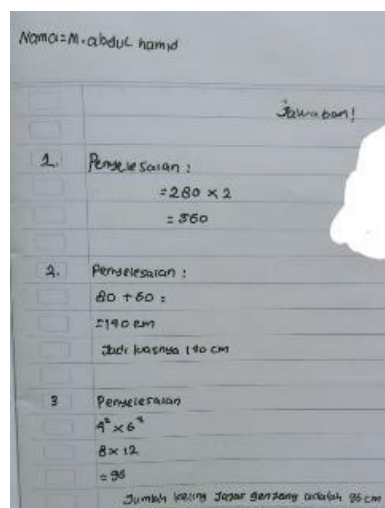 Nama = M. abdul hamid
Jawaban!
1. Penyelesaian :
= 280 × 2
= 560
2. Penyelesaian :
80 + 60 :
= 140 cm
Jadi luasnya 140 cm
3 Penyelesaian
4² × 6²
8 × 12
= 96
Jumlah keling jajar genjang adalah 96 cm